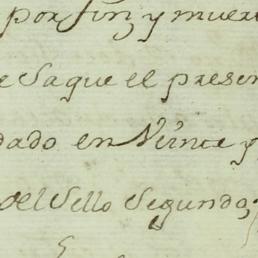 por fin, y muer
e Saque el presen
dado en Veinte y
del Sello Segundo,